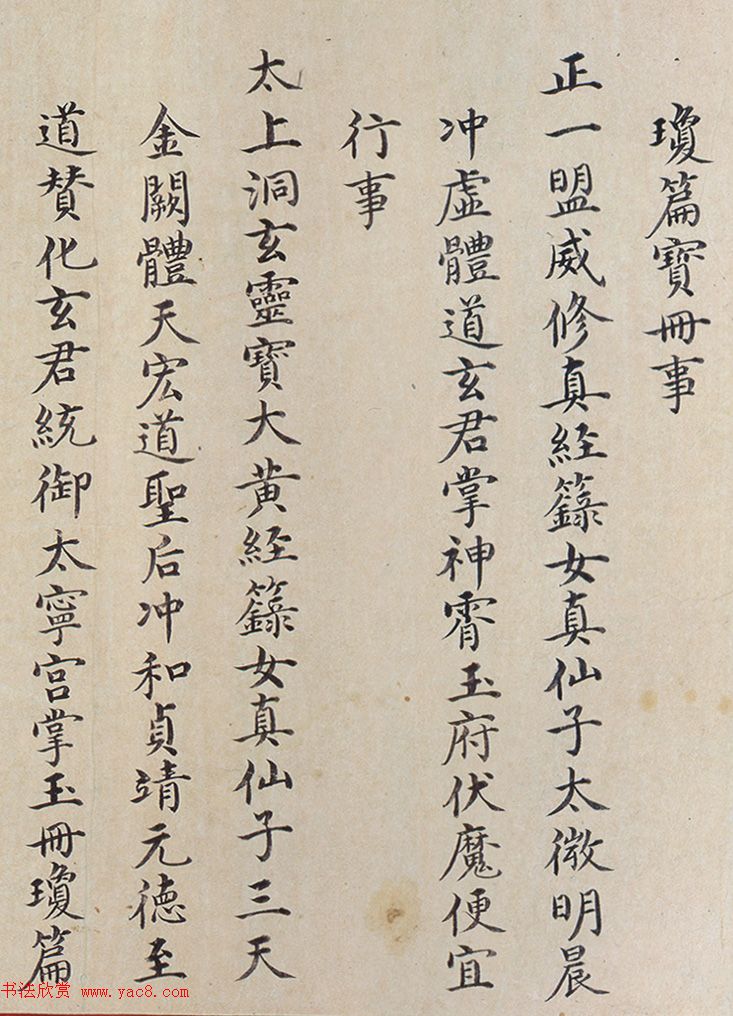 瓊篇寳冊事
正一盟威修真経籙女真仙子太微明晨
冲虛體道玄君掌神霄玉府伏魔便宜
行事
太上洞玄靈寳大黄経籙女真仙子三天
金闕體天宏道聖后冲和貞靖元德至
道賛化玄君統御太寧宫掌玉冊瓊篇
书法欣赏 www.yac8.com